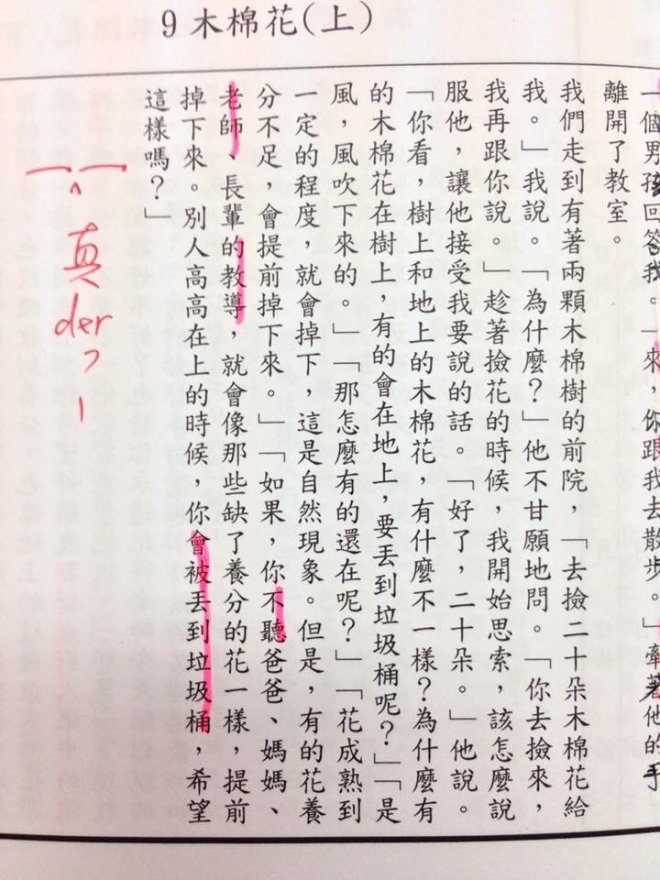 9木棉花(上)
一個男孩回答我。「來，你跟我去散步。」牽著他的手
離開了教室。
我們走到有著兩顆木棉樹的前院，「去撿二十朵木棉花給
我。」我說。「為什麼？」他不甘願地問。「你去撿來，
我再跟你說。」趁著撿花的時候，我開始思索，該怎麼說
服他，讓他接受我要說的話。「好了，二十朵。」他說。
「你看，樹上和地上的木棉花，有什麼不一樣？為什麼有
的木棉花在樹上，有的會在地上，要丟到垃圾桶呢？」「是
風，風吹下來的。」「那怎麼有的還在呢？」「花成熟到
一定的程度，就會掉下，這是自然現象。但是，有的花養
分不足，會提前掉下來。」「如果，你不聽爸爸、媽媽、
老師、長輩的教導，就會像那些缺了養分的花一樣，提前
掉下來。別人高高在上的時候，你會被丟到垃圾桶，希望
這樣嗎？」
真
der